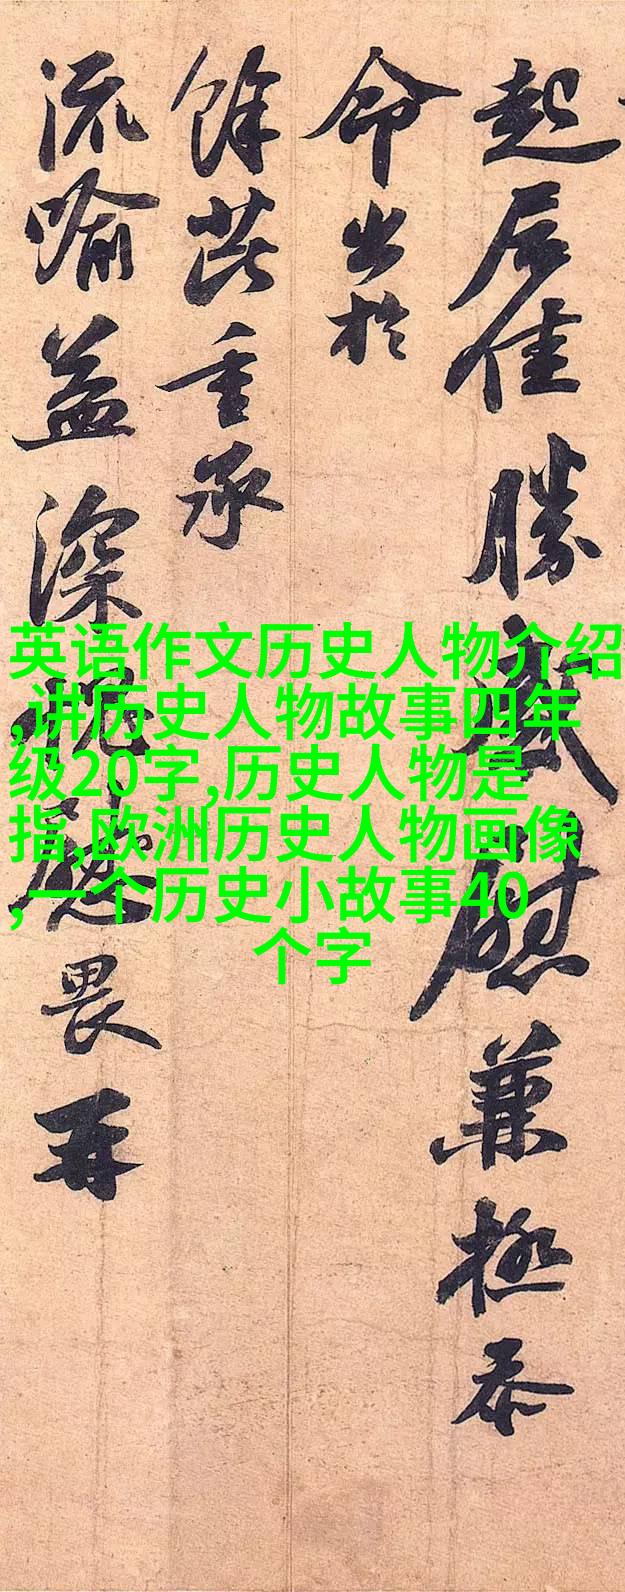 起居佳勝感慰兼極忝
命出於
餘芘重承
流喻益深愧慰畏再
英语作文历史人物介绍
,讲历史人物故事四年
级20字,历史人物是
指,欧洲历史人物画像
,一个历史小故事40
个字